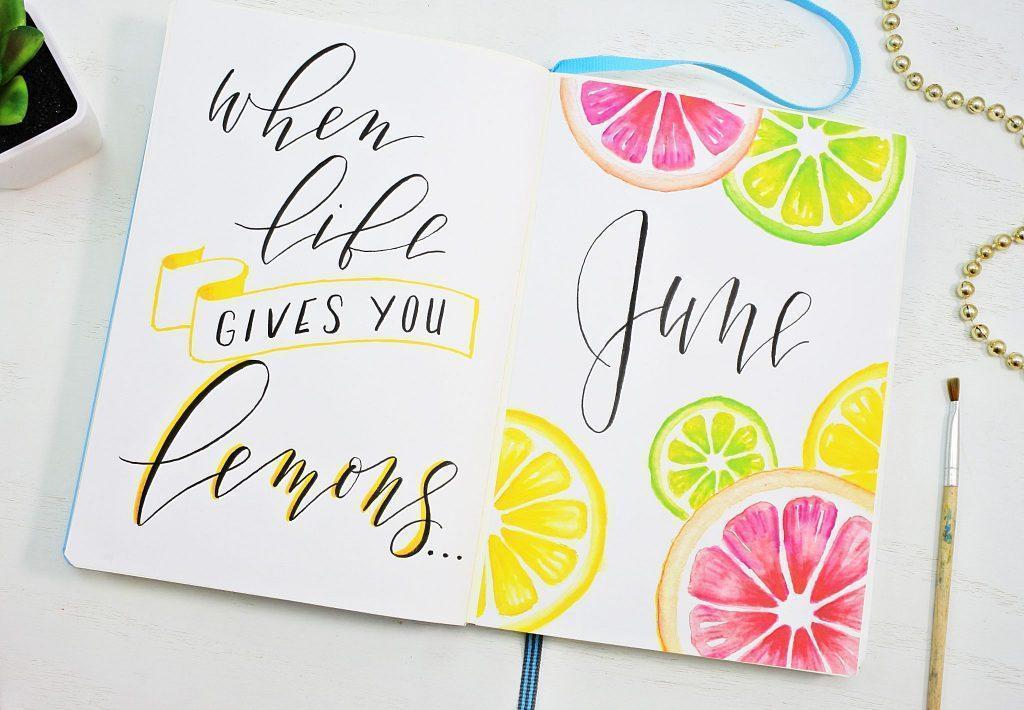 when
life
GIVES YOU
lemons...
June